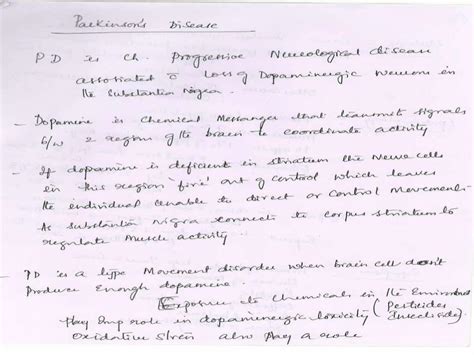 Parkinson's Disease
PD is Ch. Progressive Neurological disease
associated c̄ Loss of Dopaminergic Neurons in
the Substantia Nigra.
- Dopamine is Chemical Messanger that transmits signals
b/w 2 region of the brain to coordinate activity
- If dopamine is deficient in striatum the Nerve cells
in this region 'fire' out of control which leaves
the individual unable to direct or control movements
As substantia Nigra connects to corpus striatum to
regulate Muscle activity.
- PD is a type Movement disorder when brain cell don't
Produce Enough dopamine.
Exposure to Chemicals in the Environment
Play Imp role in dopaminergic toxicity (Pesticides
Insecticides)
oxidative Stress also Play a role